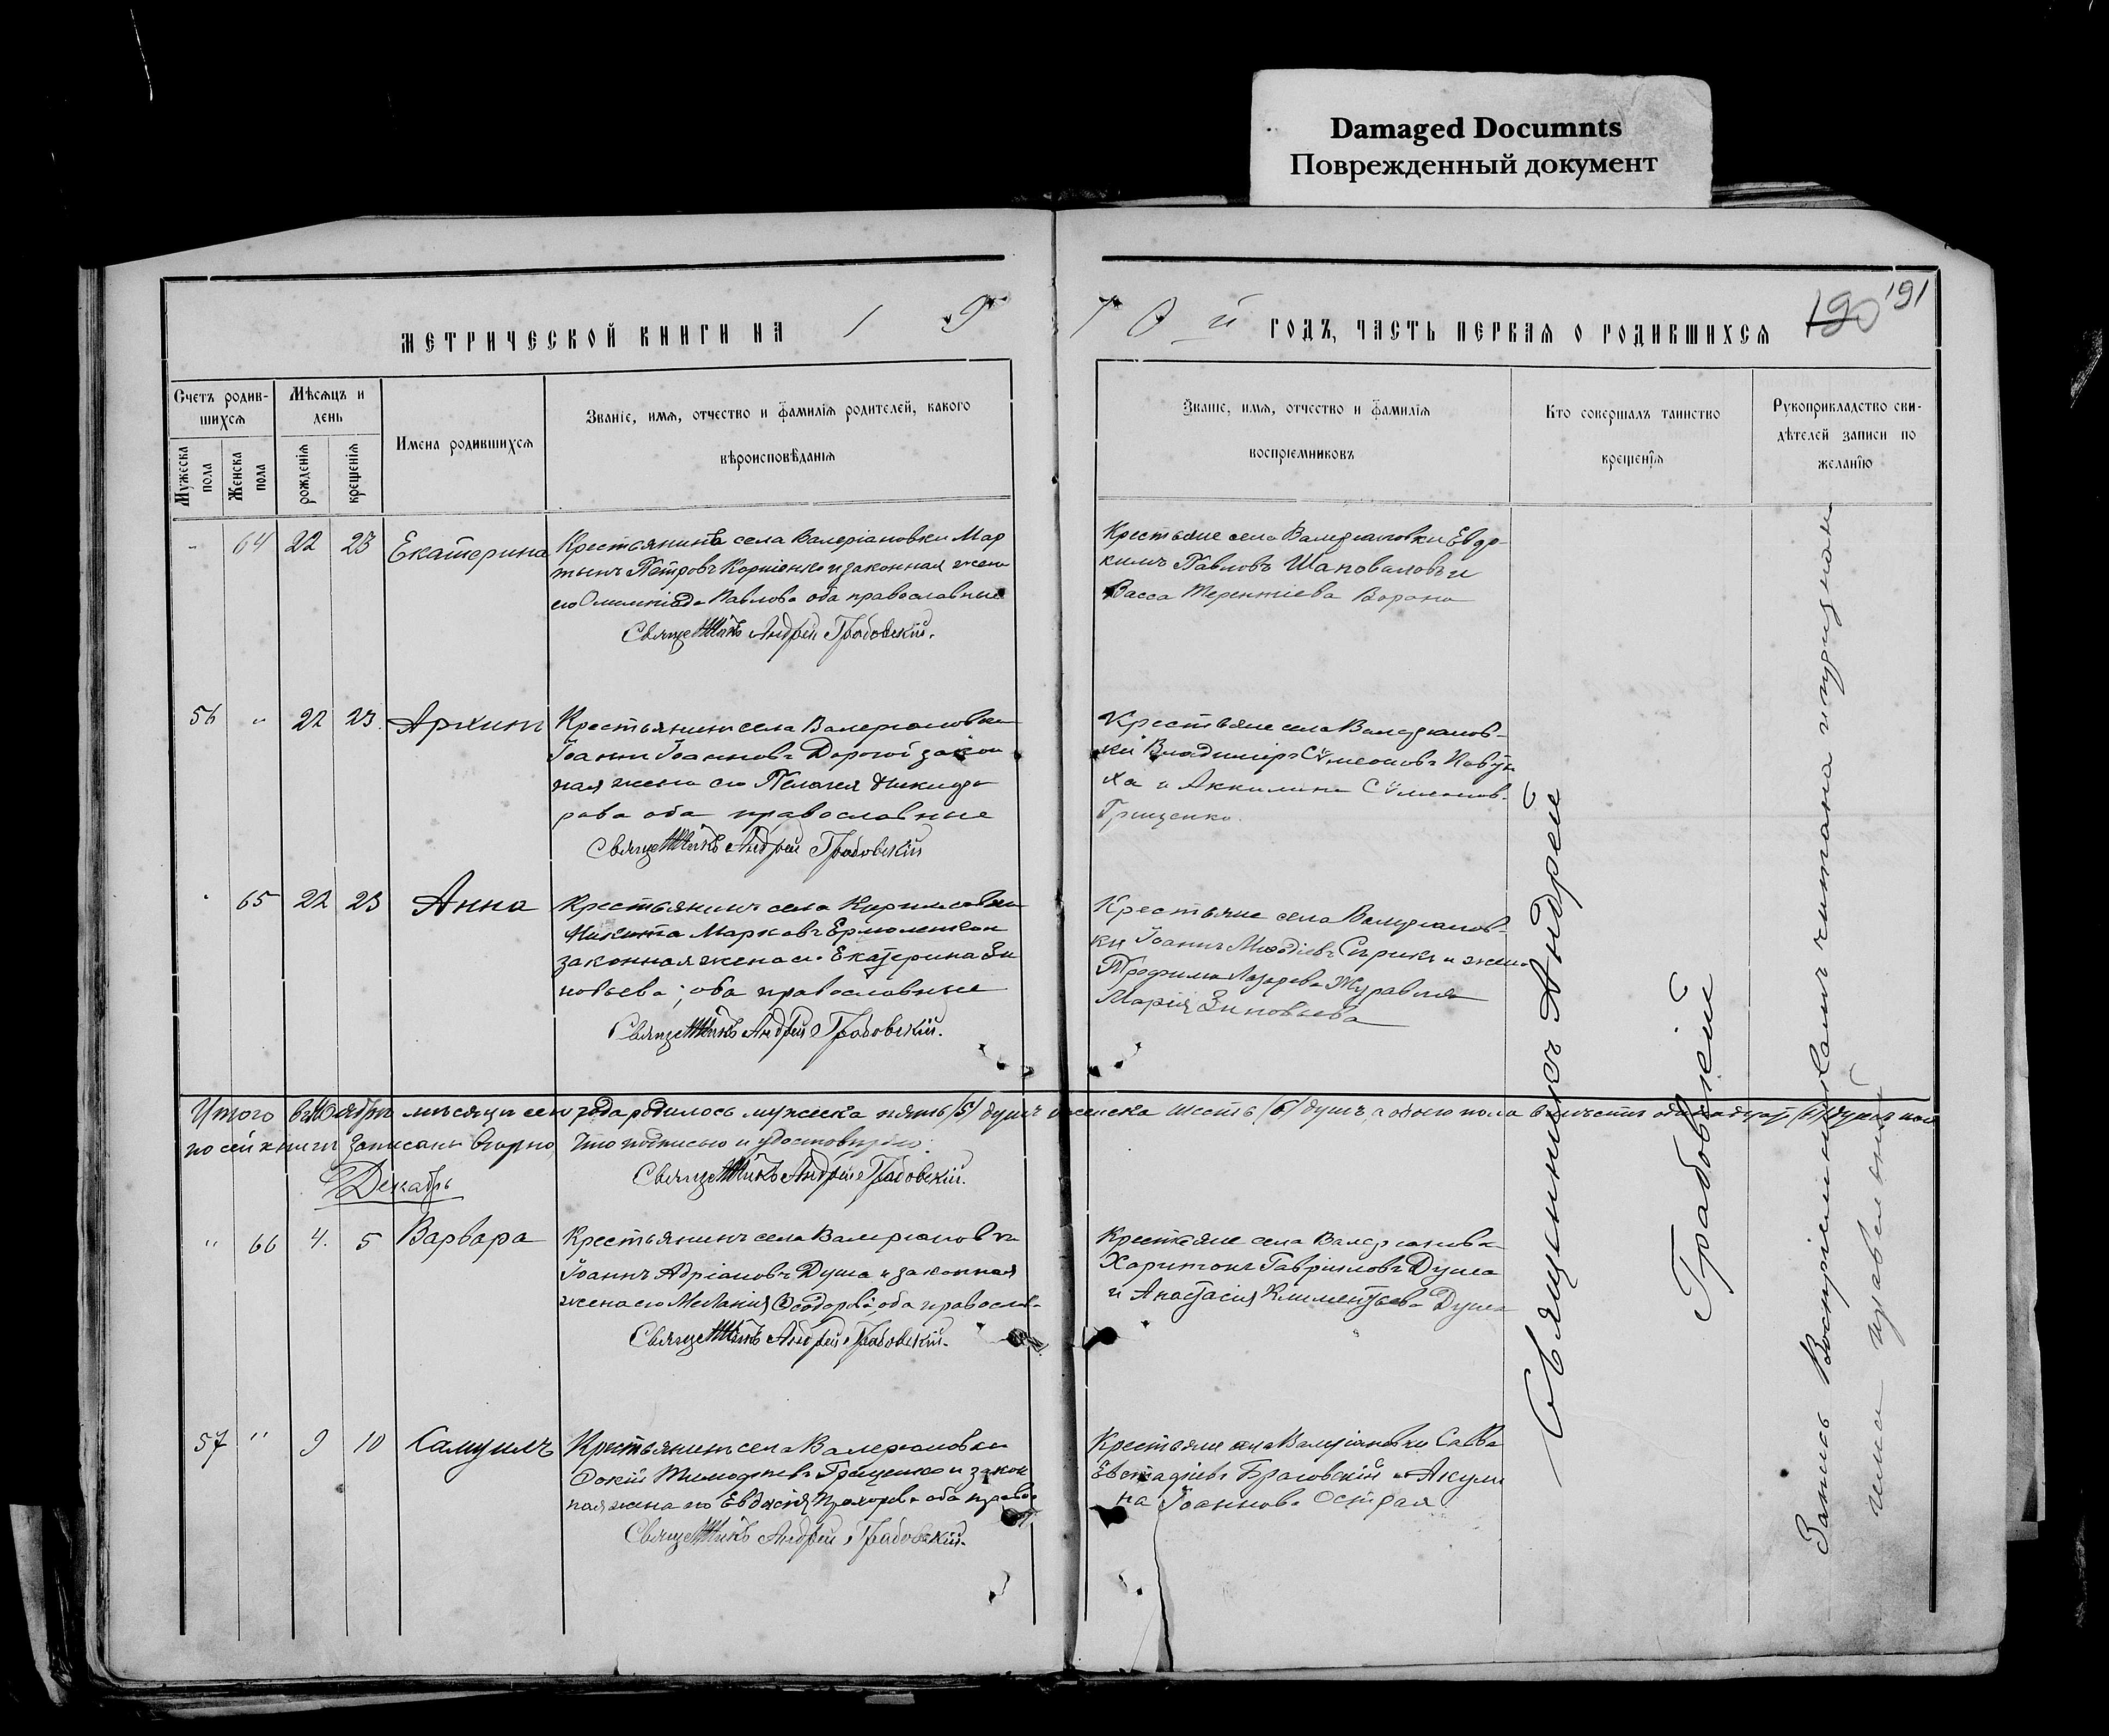 Damaged Documnts
Поврежденный документ
МЕТРИЧЕСКОЙ КНИГИ НА 1 9
1 0 й ГОДЪ, ЧАСТЬ ПЕРВАЯ О РОДИВШИХСЯ
190 191
Счетъ родив-
шихся
Мѣсяцъ и
день
Мужеска
пола
Женска
пола
рожденія
крещенія
Имена родившихся
Званіе, имя, отчество и фамилія родителей, какого
вѣроисповѣданія
Званіе, имя, отчество и фамилія
воспріемниковъ
Кто совершалъ таинство
крещенія
Рукоприкладство сви-
дѣтелей записи по
желанію
- 64 22 23 Екатерина
Крестьянинъ села Валеріановки Мар
тынъ Петровъ Корніенко и законная жена
его Олимпіада Павлова оба православные
Священникъ Андрей Грабовскій.
Крестьяне села Валеріановки Евдо-
кимъ Павловъ Шаповаловъ и
Васса Терентіева Ворона
56 " 22 23. Архипъ
Крестьянинъ села Валеріановки
Іоаннъ Іоанновъ Дорогой закон
ная жена его Пелагея Никифо
рова оба православные
Священникъ Андрей Грабовскій
Крестьяне села Валеріанов-
ки Владиміръ Сѵмеоновъ
ха и Аккилина Сѵмеонов.
Грищенко.
" 65 22 23 Анна
Крестьянинъ села
Никита Марковъ
законная жена его Екатерина Зи
новьева; оба православные
Священникъ Андрей Грабовскій.
Крестьяне села Валеріанов-
ки Іоаннъ Меѳодіевъ Сирикъ и жена
Трофима Лазарева Журавля
Марія Зиновьева
Итого въ Ноябрѣ мѣсяцѣ сего года родилось мужеска пять /5/ душъ женска шесть /6/ душъ, а обоего пола вмѣстѣ одинадцать /11/ душъ кои
по сей книгѣ записаны вѣрно, что подписью и удостовѣряю:
Священникъ Андрей Грабовскій.
Декабрь
" 66 4. 5 Варвара
Крестьянинъ села Валеріановки
Іоаннъ Адріановъ Душа и законная
жена его Меланія Ѳеодорова, оба православ.
Священникъ Андрей Грабовскій.
Крестьяне села Валеріановки
Харитонъ Гавриловъ Душа
и Анастасія Климентьева Душа
57 " 9 10 Самуилъ
Крестьянинъ села Валеріановки
Фокій Тимофеевъ Грищенко и закон
ная жена его Евдокія Прохорова оба правос
Священникъ Андрей Грабовскій.
Крестьяне села Валеріановки Савва
Евстафіевъ Браговскій и Акули
на Іоаннова Острая
Священникъ Андрей
Грабовскій
Запись воспріемникамъ читана и признана
ими правильной